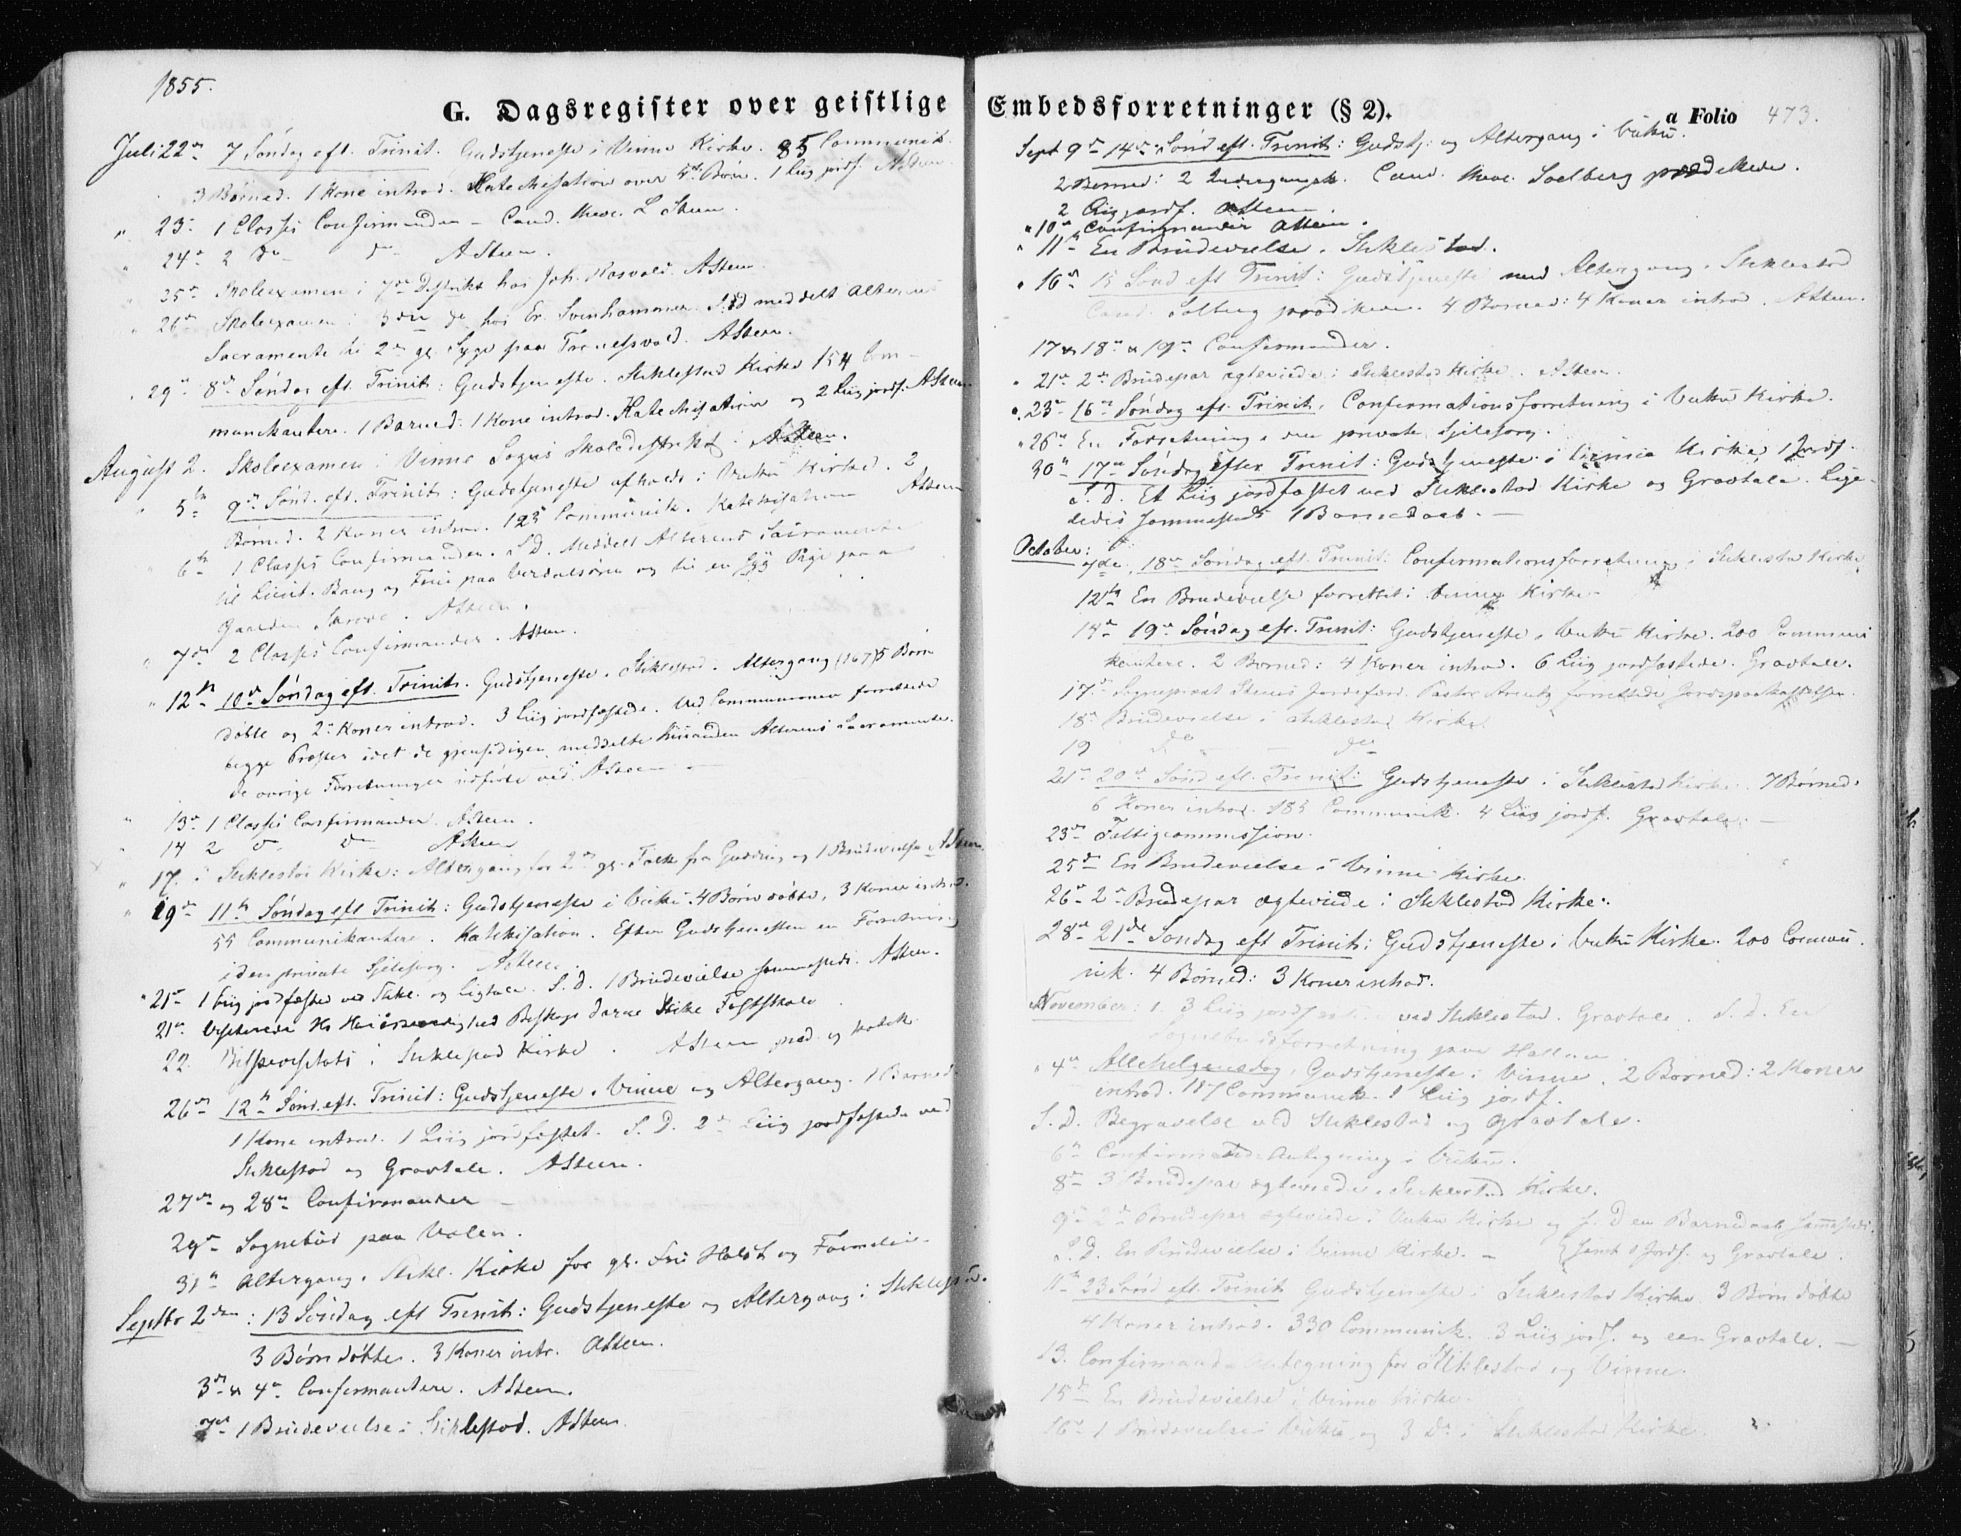 1855.
G. Dagsregister over geistlige Embedsforretninger (§ 2).
a Folio 473.
Juli 22de 7 Søndag eft. Trinit. Gudstjeneste i Vinne Kirke. 85 Communik.
3 Børned. 1 Kone introd. Katechisation over Børn. 1 Liig jordf. ASteen
" 23. 1 Classes Confirmander – Cand. theol. L Steen.
" 24de 2 do do ASteen.
" 25de Skoleexamen i 7de Distrikt hos Joh. ASteen.
" 26de Skoleexamen i 3die do hos Er. Svinhammer. S.D. meddelt Alterens
Sacramente til 2de gl. Syge paa ASteen.
" 29de 8de Søndag eft. Trinit: Gudstjeneste i Stiklestad Kirke 154 Com-
munikantere. 1 Barned: 1 Kone introd. Katechisation og 2 Liig jordf. ASteen
August 2. Skoleexamen i Vinne Sogns Skoledistrikt ASteen.
" 5te 9de Sønd. eft. Trinit: Gudstjeneste afholdt i Vuku Kirke. 2
Børned. 2 Koner introd. 125 Communik. Katekisation ASteen
" 6te 1 Classes Confirmander. S.D. Meddelt Alterens Sacramente
til Lieut. Bang og Frue paa Verdalsøren og til en Syg Pige paa
Gaarden ASteen.
" 7de 2 Classes Confirmander. ASteen.
" 12te 10de Søndag eft. Trinit. Gudstjeneste i Stiklestad. Altergang (167) 5 Børn
døbte og 2 Koner introd. 3 Liig jordfæstede. Ved Communionen forrettede
begge Præster idet de gjensidigen meddelte hinanden Alterens Sacramente.
De øvrige Forretninger udførte ved ASteen
" 13de 1 Classes Confirmander. ASteen.
" 14 2 do do ASteen
" 17. i Stiklestad Kirke: Altergang for 2de gl. Folk fra og 1 Brudevielse ASteen.
" 19de 11te Søndag eft Trinit: Gudstjeneste i Vuku. 4 Børn døbte, 3 Koner introd.
55 Communikantere. Katekisation. Efter Gudstjenesten en Forretning
i den private Sjelesorg. ASteen.
" 21de 1 Liig jordfæstet ved Stikl. og Ligtale. S.D. 1 Brudevielse sammesteds. ASteen.
21de
22. Bispevisitats i Stiklestad Kirke. ASteen præd. og katek.
26de 12te Sønd. eft. Trinit: Gudstjeneste i Vinne og Altergang. 1 Barned
1 Kone introd. 1 Liig jordfæstet. S.D. 2de Liig jordfæstede ved
Stiklestad og Gravtale. ASteen.
27de og 28de Confirmander –
29de Sognebud paa Volen.
31te Altergang i Stikl. Kirke for gl. Fru Holst og
Septbr 2den: 13 Søndag eft Trinit: Gudstjeneste og Altergang i Stiklestad.
3 Børn døbte. 3 Koner intr. ASteen.
3de & 4de Confirmantere. ASteen.
7de 1 Brudevielse i Stiklestad. ASteen
Sept 9de 14de Sønd eft. Trinit: Gudstj: og Altergang i Vuku.
2 Børned: 2 Cand. theol. Soelberg prædikede.
2 Liig jordf. ASteen.
" 10de Confirmander ASteen.
" 11te En Brudevielse i Stiklestad.
" 16de 15 Sønd eft Trinit: Gudstjeneste med Altergang i Stiklestad
Cand. Solberg prædikede. 4 Børned: 4 Koner introd. ASteen.
17 & 18de & 19de Confirmander.
" 21de 2de Brudepar ægteviede i Stiklestad Kirke. ASteen.
" 23de 16de Søndag eft. Trinit. Confirmationsforretning i Vuku Kirke.
" 26de En Forretning i den private Sjelesorg.
30te 17de Søndag efter Trinit: Gudstjeneste i Vinne Kirke 1 Jordf.
S.D. Et Liig jordfæstet ved Stiklestad Kirke og Gravtale. Lige-
ledes sammesteds 1 Barnedaab. –
October:
7de. 18de Søndag eft. Trinit: Confirmationsforretning i Stiklestad Kirke
12te En Brudevielse forrettet i Vinne Kirke –
14de 19de Søndag eft. Trinit: Gudstjeneste i Vuku Kirke. 200 Communi
kantere. 2 Børned: 4 Koner introd. 6 Liig jordfæstede. Gravtale.
17de Sogneprest Steens Jordefærd. Pastor Arentz forrettede Jordspaakastelsen.
18de Brudevielse i Stiklestad Kirke.
19 do do
21de 20de Sønd eft. Trinit: Gudstjeneste i Stiklestad Kirke. 7 Børned:
6 Koner introd. 185 Communik. 4 Liig jordf. Gravtale. –
23de Fattigcommission.
25de En Brudevielse i Vinne Kirke.
26de 2de Brudepar ægteviede i Stiklestad Kirke.
28de 21de Søndag eft Trinit: Gudstjeneste i Vuku Kirke. 200 Commu
nik. 4 Børned: 3 Koner introd.
November: 1. 3 Liig jordfæstede ved Stiklestad. Gravtale. S.D. En
Sognebudsforretning paa Hallem.
" 4de Allehelgensdag, Gudstjeneste i Vinne. 2 Børned: 2 Koner
introd. 187 Communik. 1 Liig jordf.
S.D. Begravelse ved Stiklestad og Gravtale.
6te Confirmand Antegning i Vuku.
8de 3 Brudepar ægteviede i Stiklestad Kirke.
9de 2de Brudepar ægteviede i Vuku Kirke og Barnedaab sammesteds.
S.D. En Brudevielse i Vinne Kirke. – samt 1 Jordf. og Gravtale.
11te 23 Sønd eft. Trinit Gudstjeneste i Stiklestad Kirke 3 Børn døbte
4 Koner introd. 330 Communik. 3 Liig jordf. og een Gravtale. –
13. Confirmand Antegning for Stiklestad og Vinne.
15de En Brudevielse i Vinne Kirke.
16de 1 Brudevielse i Vuku og 3 Do i Stiklestad Kirke.